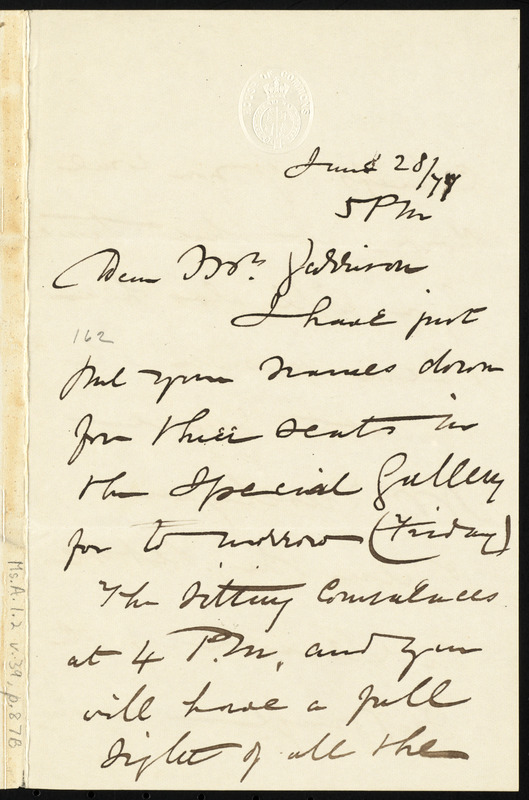 June 28/77
5 P.M
Dear Mr. Garrison
I have just
162
put your names down
for three seats in
the Special Gallery
for to morrow (Friday)
The Sitting Commences
at 4 P.M, and you
will have a full
sight of all the
Ms.A.1.2 v.39, p.87B